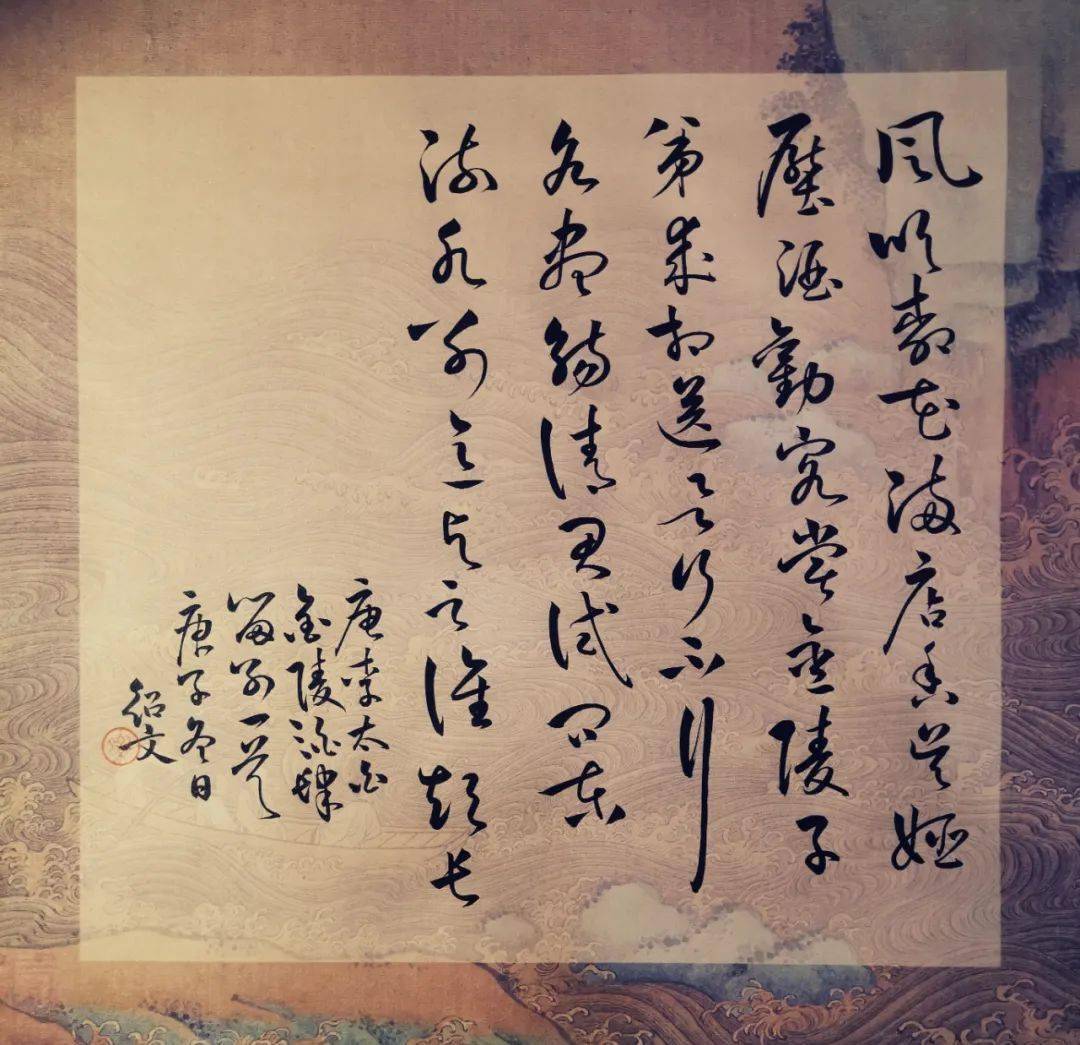 風吹柳花滿店香吳姬
壓酒勸客嘗金陵子
弟來相送欲行不行
各盡觴請君試問東
流水別意與之誰短長
唐李太白
金陵酒肆
留別一首
庚子冬日
紹文